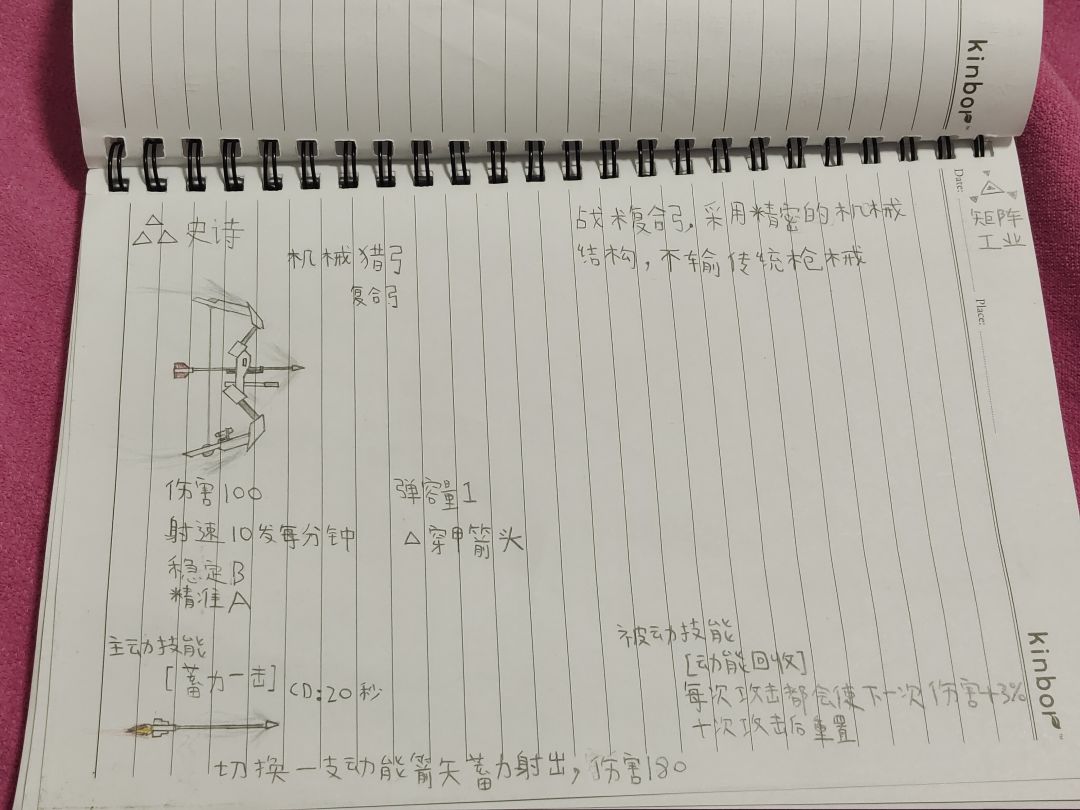 kinbor
Date:
Place:
矩阵
工业
史诗
机械猎弓
复合弓
战术复合弓,采用精密的机械
结构,不输传统枪械
伤害100
弹容量1
射速10发每分钟
△穿甲箭头
稳定B
精准A
主动技能
[蓄力一击] CD:20秒
切换一支动能箭矢蓄力射出,伤害180
被动技能
[动能回收]
每次攻击都会使下一次伤害+3%
十次攻击后重置
kinbor